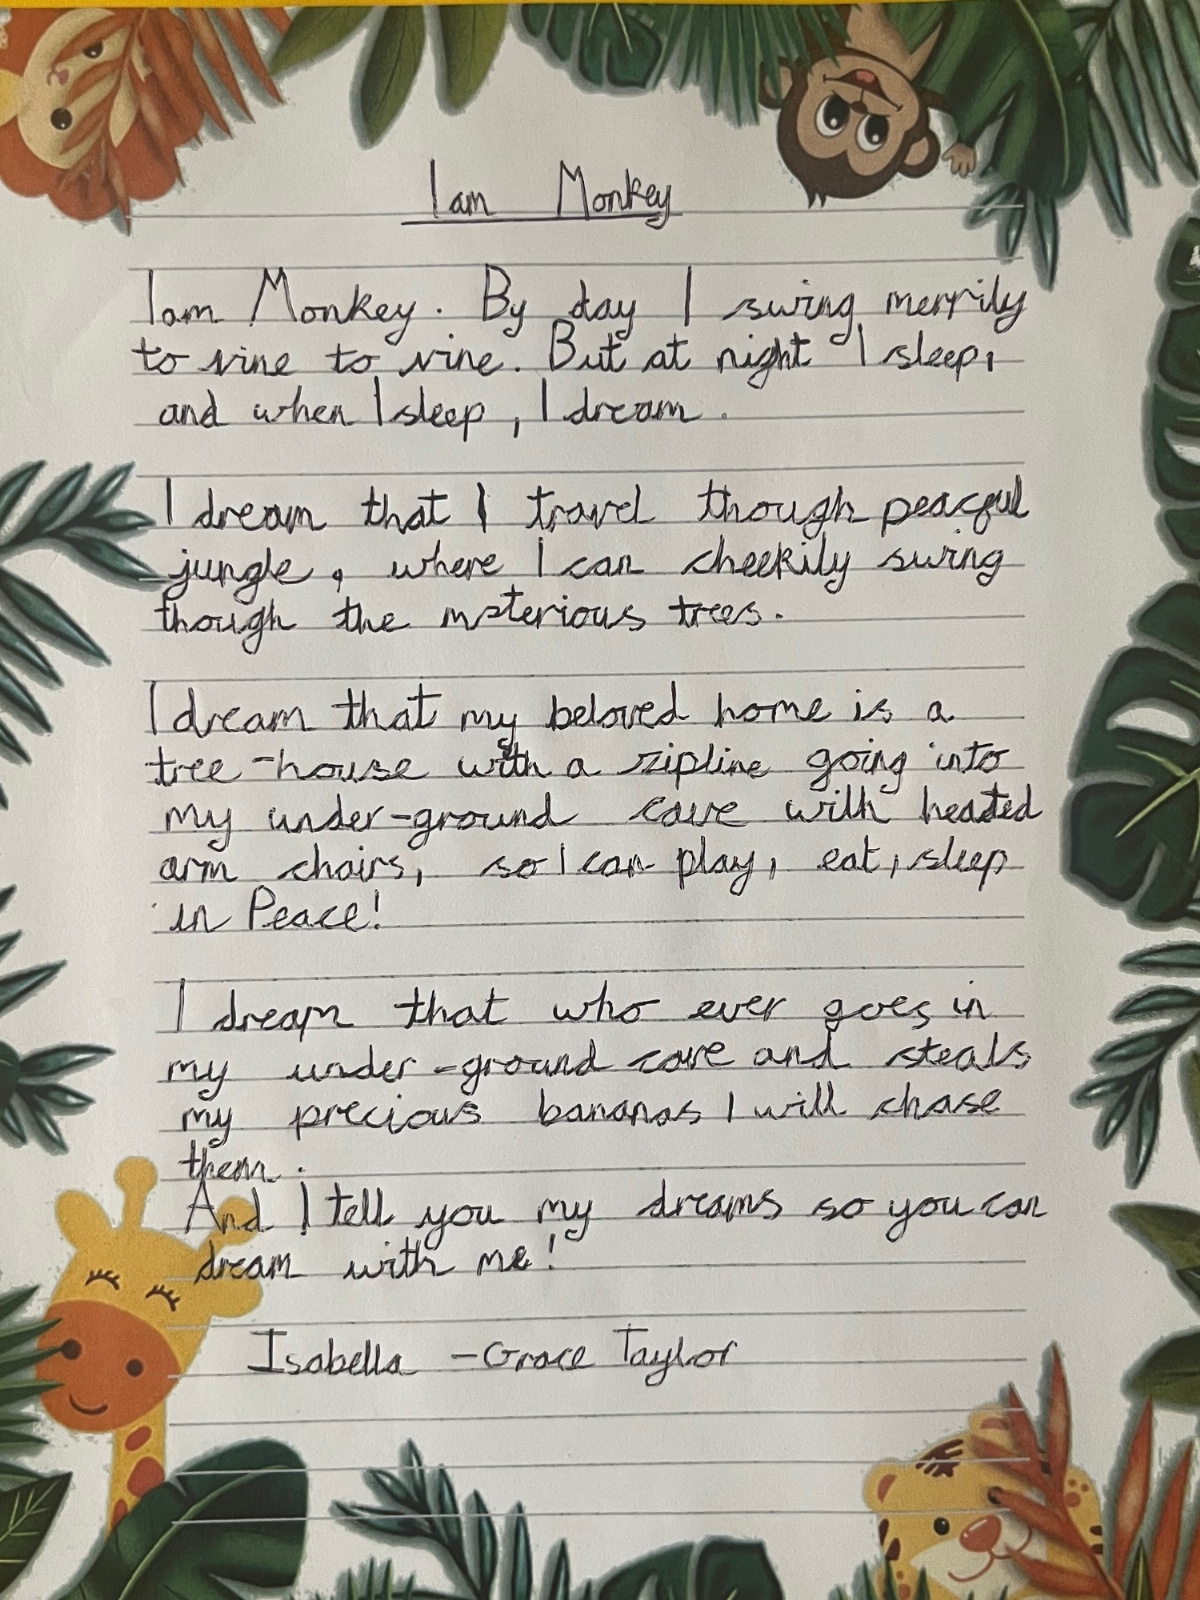 I am Monkey
I am Monkey. By day I swing merrily
to vine to vine. But at night I sleep,
and when I sleep, I dream.
I dream that I travel though peaceful
jungle, where I can cheekily swing
though the misterious trees.
I dream that my beloved home is a
tree-house with a zipline going into
my under-ground cave with heated
arm chairs, so I can play, eat, sleep
in Peace!
I dream that who ever goes in
my under-ground cave and steals
my precious bananas I will chase
them.
And I tell you my dreams so you can
dream with me!
Isabella -Grace Taylor